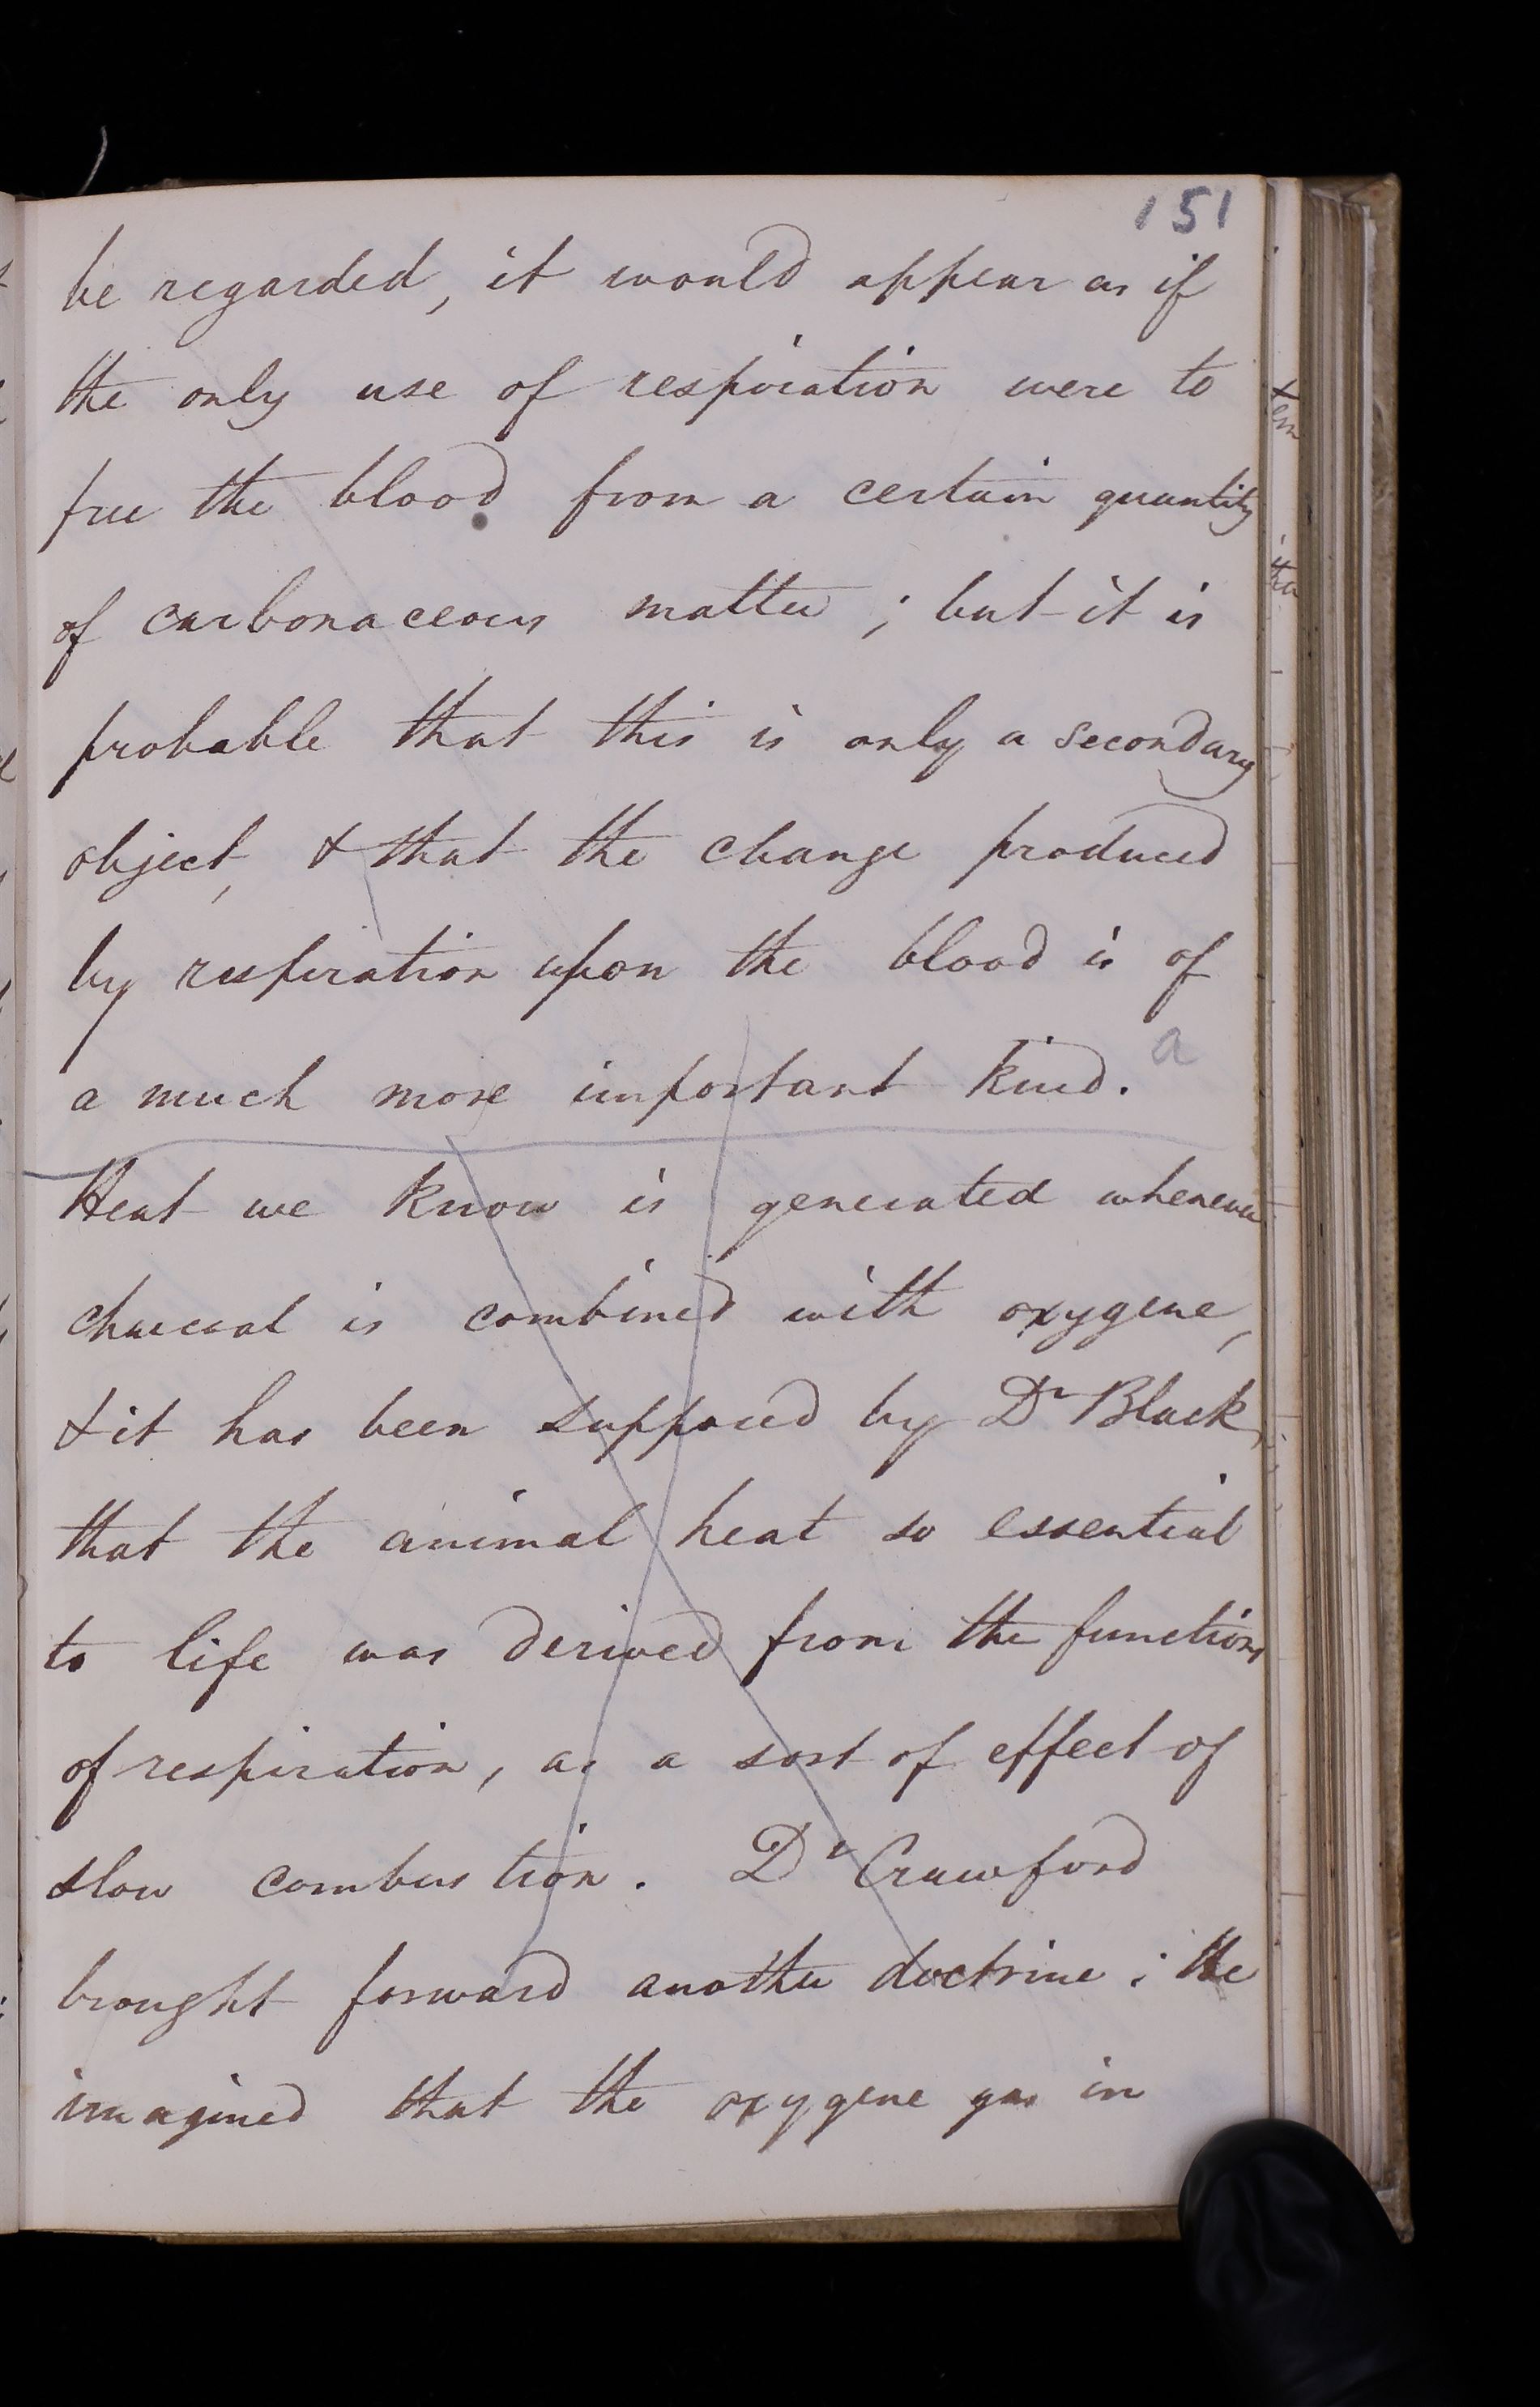 151
be regarded, it would appear as if
the only use of respiration were to
free the blood from a certain quantity
of carbonaceous matter; but it is
probable that this is only a secondary
object, & that the change produced
by respiration upon the blood is of
a much more important kind. a
Heat we know is generated whenever
charcoal is combined with oxygene,
& it has been supposed by Dr Black,
that the animal heat so essential
to life was derived from the functions
of respiration, as a sort of effect of
slow combustion. Dr Crawford
brought forward another doctrine; He
imagined that the oxygene gas in